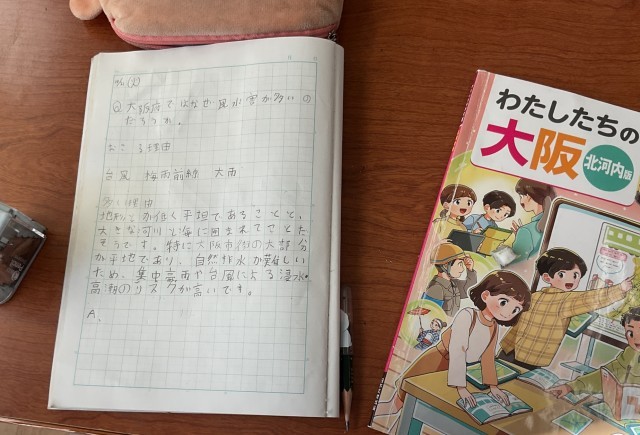 9/6 (火)
Q 大阪府ではなぜ風水害が多いの
だろうか。
おこる理由
台風 梅雨前線 大雨
多い理由
地形が低く平坦であることと、
大きな河川と海に囲まれてことだ
そうです。特に大阪市街の大部分
が平地であり、自然排水が難しい
ため、集中豪雨や台風による浸水
高潮のリスクが高いです。
A.
わたしたちの
大阪
北河内版